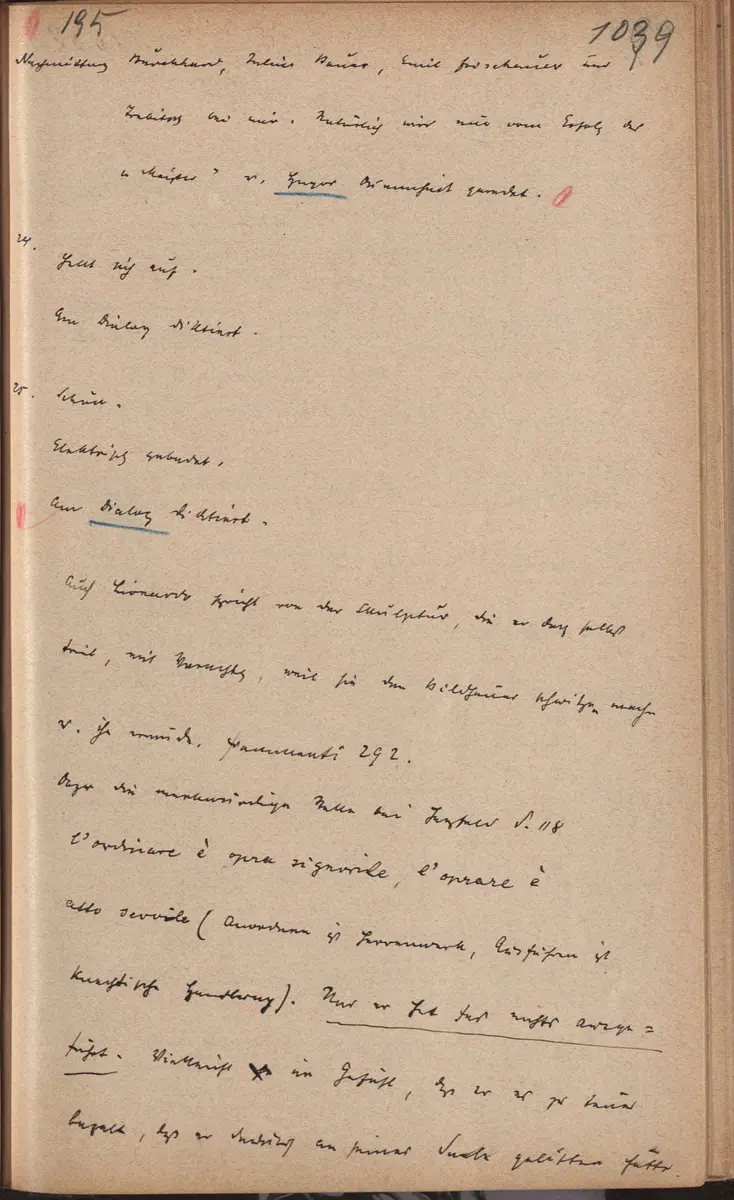 195
1039
Nachmittag Burckhard, Julius Bauer, Emil Frischauer und
Trebitsch bei mir. Natürlich wird nur vom Erfolg des
„Meister“ u. Hugos Dummheit geredet.
24.
Hellt sich auf.
Am Dialog diktiert.
25.
Schön.
Elektrisch gebadet.
Am Dialog diktiert.
Auch Lionardo spricht von der Skulptur, die er doch selbst
trieb, mit Verachtung, weil sie den Bildhauer schwitzen mache
u. ihn ermüde. 292.
Dazu die merkwürdige Stelle bei Herzfeld S. 118
l'ordinare è opra signorile, l'oprare è
atto servile (Anordnen ist Herrenwerk, Ausführen ist
knechtische Handlung). Nur er hat fast nichts ausge=
führt. Vielleicht im Gefühl, daß er es zu teuer
bezalt, daß er dadurch an seiner Seele gelitten hätte.